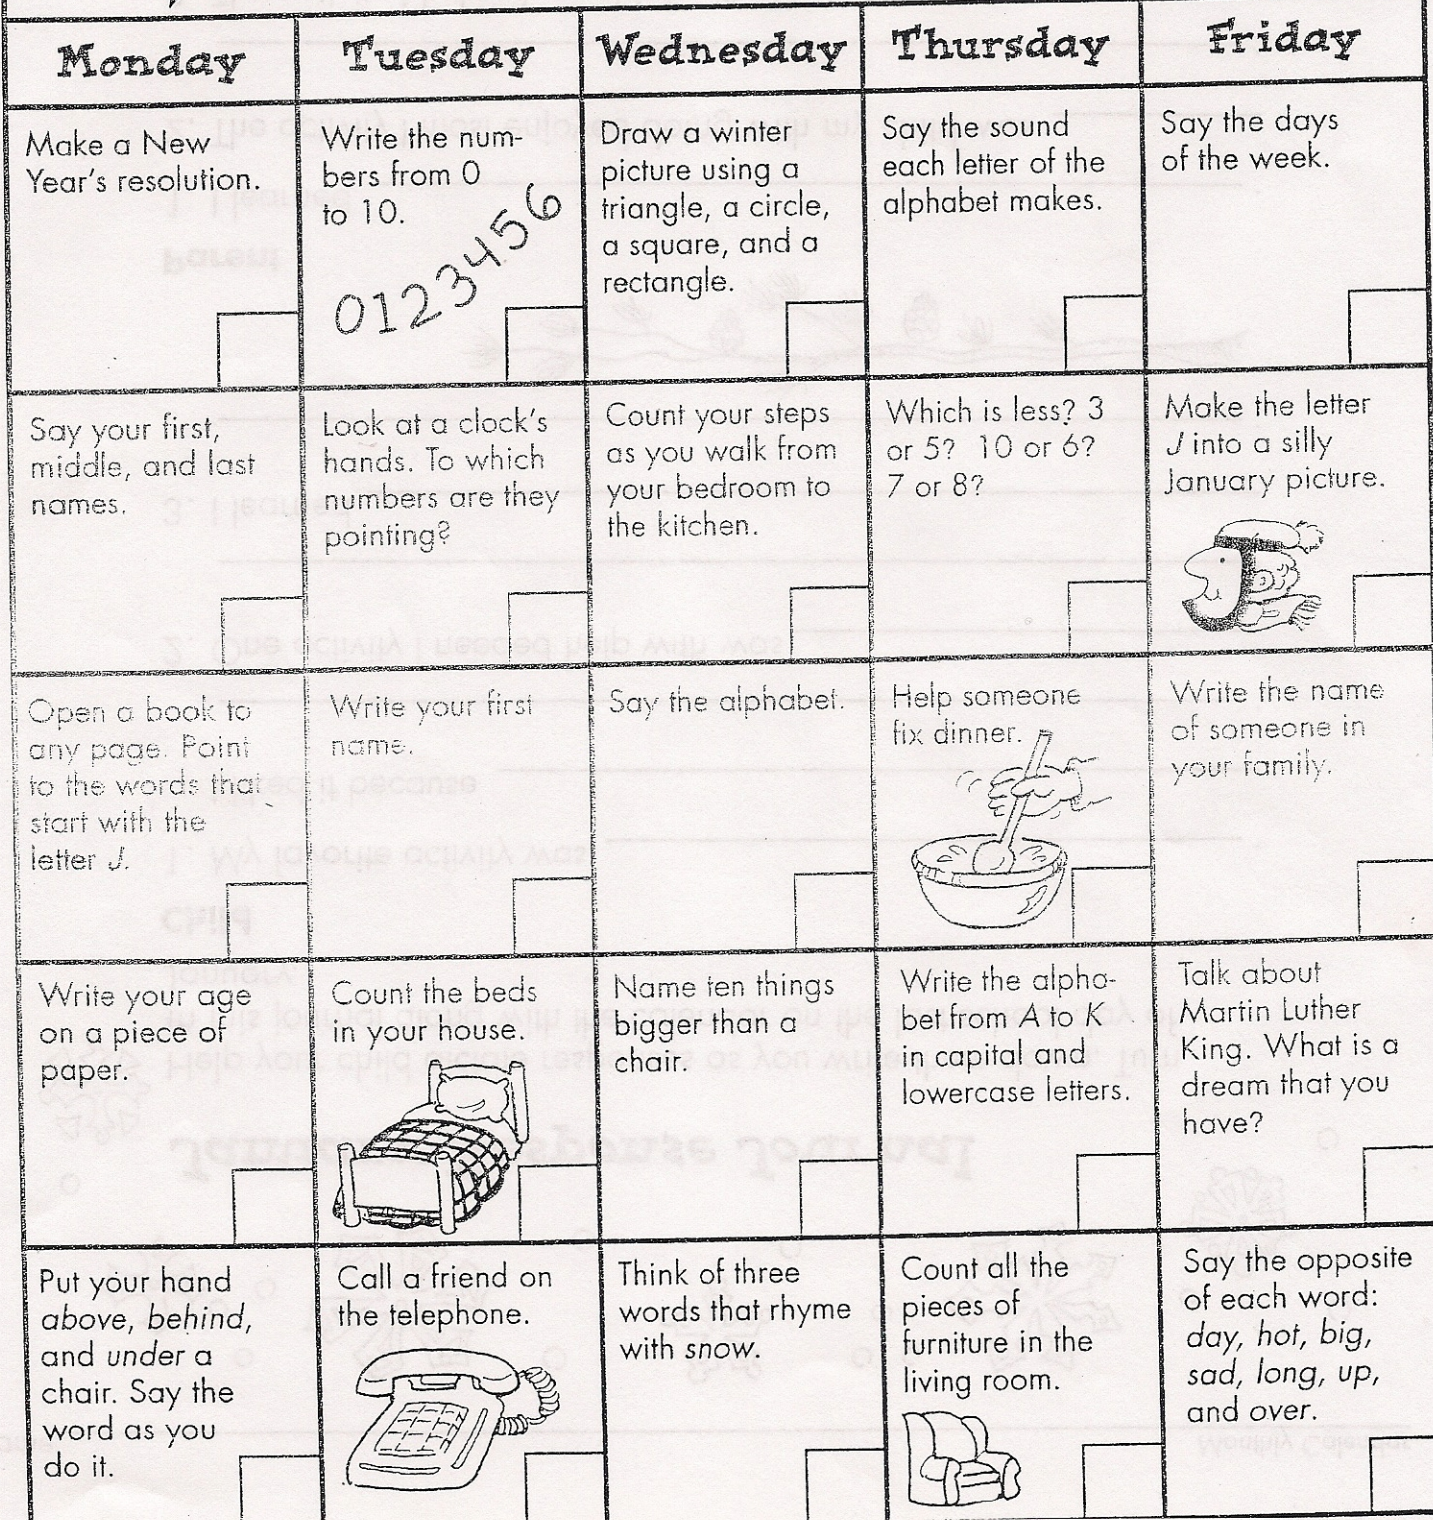 Monday
Tuesday
Wednesday
Thursday
Friday
Make a New
Year's resolution.
Write the num-
bers from 0
to 10.
0123456
Draw a winter
picture using a
triangle, a circle,
a square, and a
rectangle.
Say the sound
each letter of the
alphabet makes.
Say the days
of the week.
Say your first,
middle, and last
names.
Look at a clock's
hands. To which
numbers are they
pointing?
Count your steps
as you walk from
your bedroom to
the kitchen.
Which is less? 3
or 5? 10 or 6?
7 or 8?
Make the letter
J into a silly
January picture.
Open a book to
any page. Point
to the words that
start with the
letter J.
Write your first
name.
Say the alphabet.
Help someone
fix dinner.
Write the name
of someone in
your family.
Write your age
on a piece of
paper.
Count the beds
in your house.
Name ten things
bigger than a
chair.
Write the alpha-
bet from A to K
in capital and
lowercase letters.
Talk about
Martin Luther
King. What is a
dream that you
have?
Put your hand
above, behind,
and under a
chair. Say the
word as you
do it.
Call a friend on
the telephone.
Think of three
words that rhyme
with snow.
Count all the
pieces of
furniture in the
living room.
Say the opposite
of each word:
day, hot, big,
sad, long, up,
and over.